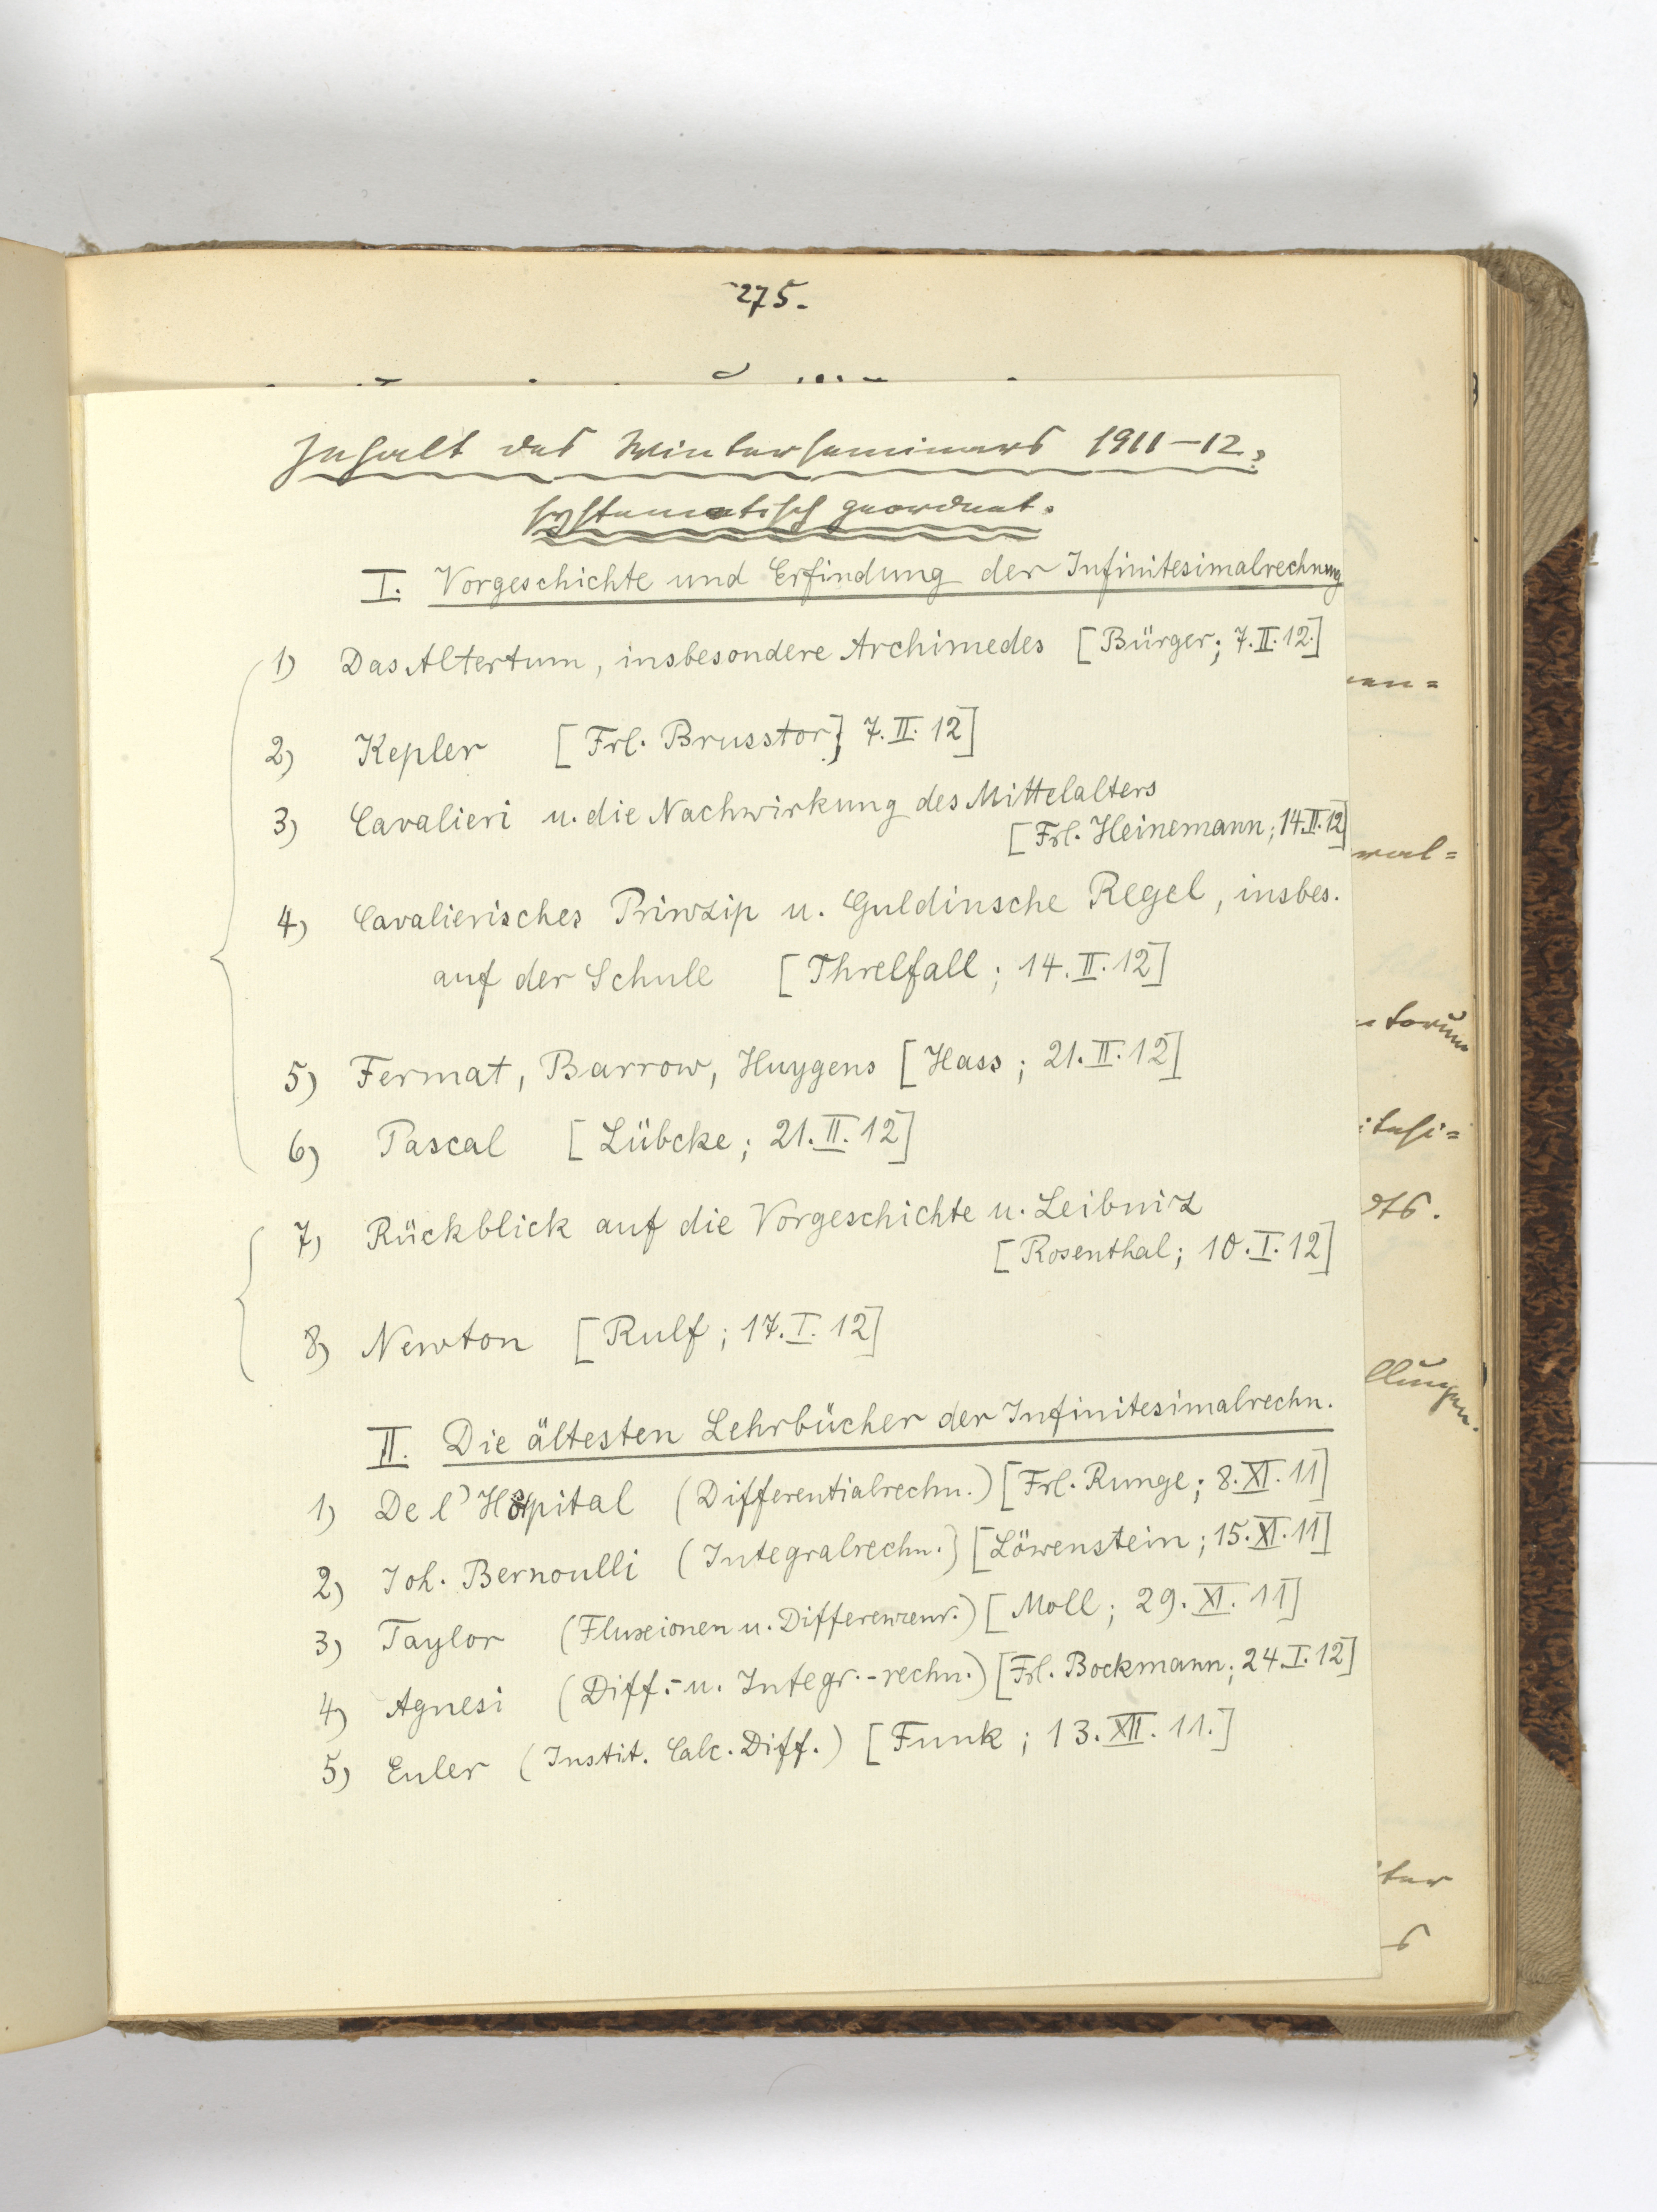 275.
Inhalt des Winterseminars 1911–12,
systematisch geordnet.
I. Vorgeschichte und Erfindung der Infinitesimalrechnung
1) Das Altertum, insbesondere Archimedes [Bürger; 7.II.12.]
2) Kepler [Frl. Brusstor; 7.II.12]
3) Cavalieri u. die Nachwirkung des Mittelalters
[Frl. Heinemann; 14.II.12]
4) Cavalierisches Prinzip u. Guldinsche Regel, insbes.
auf der Schule [Threlfall; 14.II.12]
5) Fermat, Barrow, Huygens [Hass; 21.II.12]
6) Pascal [Lübcke; 21.II.12]
7) Rückblick auf die Vorgeschichte u. Leibniz
[Rosenthal; 10.I.12]
8) Newton [Rulf; 17.I.12]
II. Die ältesten Lehrbücher der Infinitesimalrechn.
1) De l'Hospital (Differentialrechn.) [Frl. Runge; 8.XI.11]
2) Joh. Bernoulli (Integralrechn.) [Löwenstein; 15.XI.11]
3) Taylor (Fluxionen u. Differenzenr.) [Moll; 29.XI.11]
4) Agnesi (Diff.- u. Integr.-rechn.) [Frl. Bockmann; 24.I.12]
5) Euler (Instit. Calc. Diff.) [Funk; 13.XII.11.]